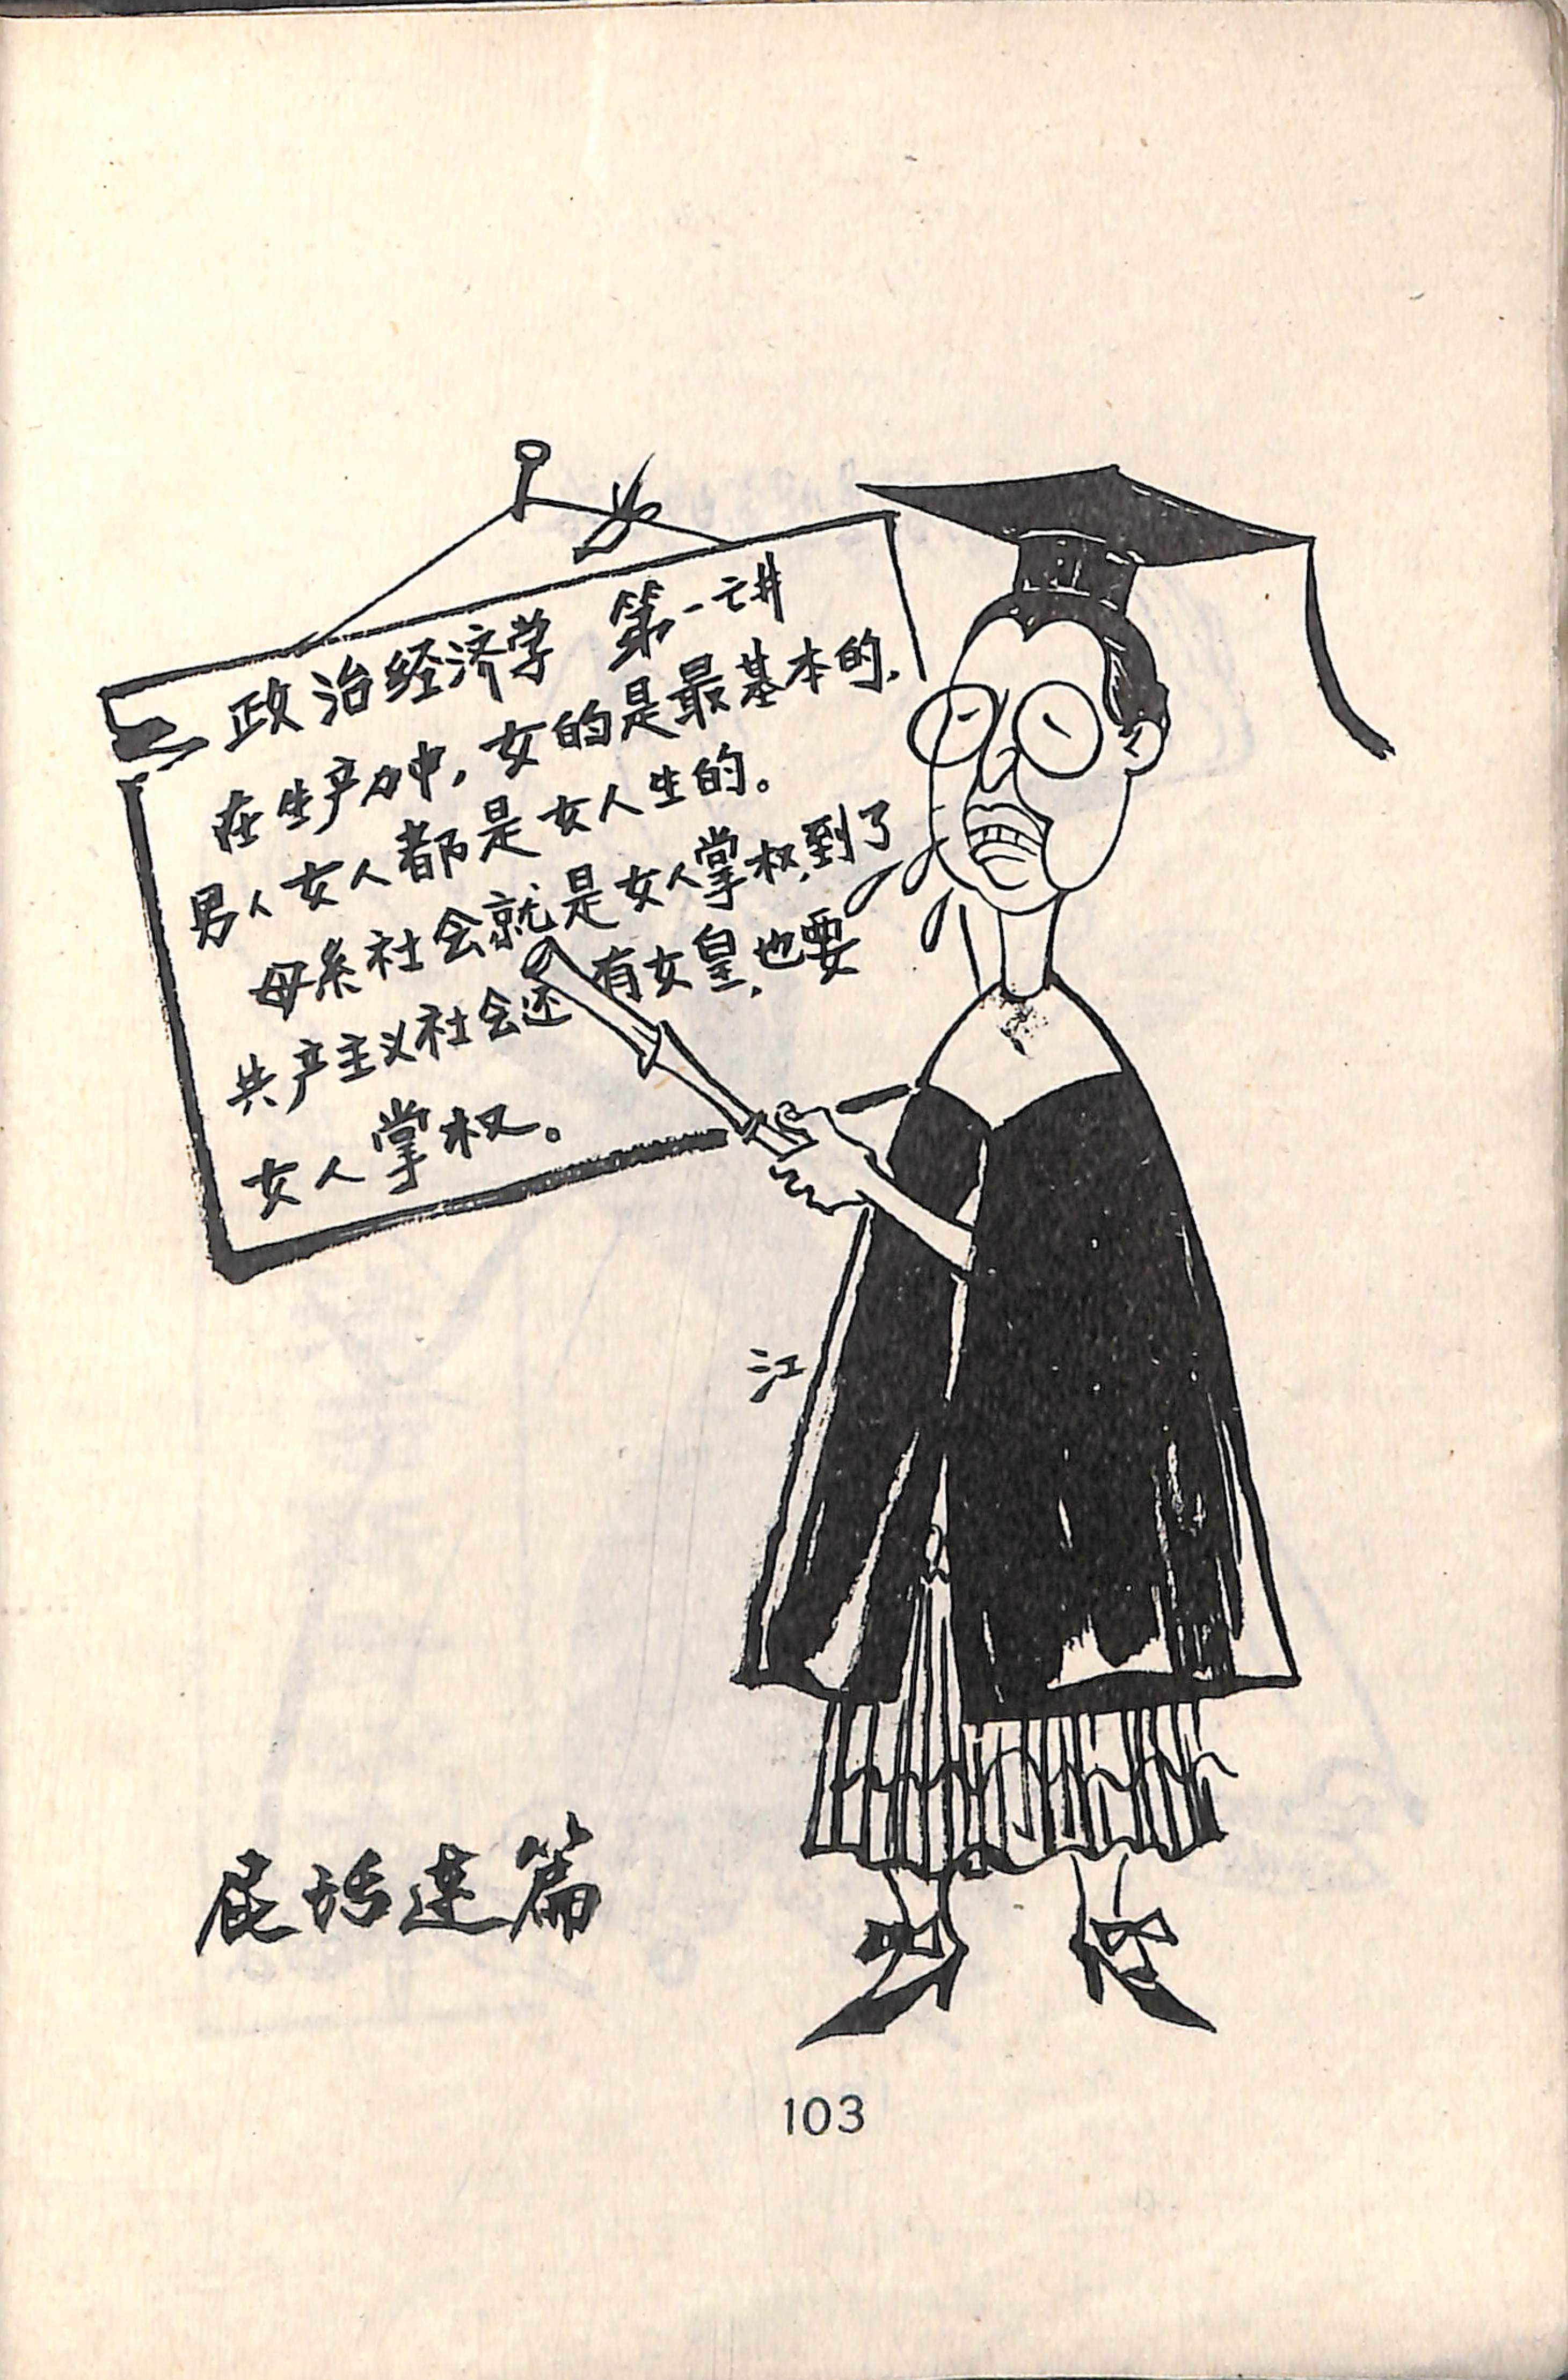 政治经济学 第一讲
在生产力中，女的是最基本的，
男人女人都是女人生的。
母系社会就是女人掌权，到了
共产主义社会还有女皇，也要
女人掌权。
江
屁话连篇
103